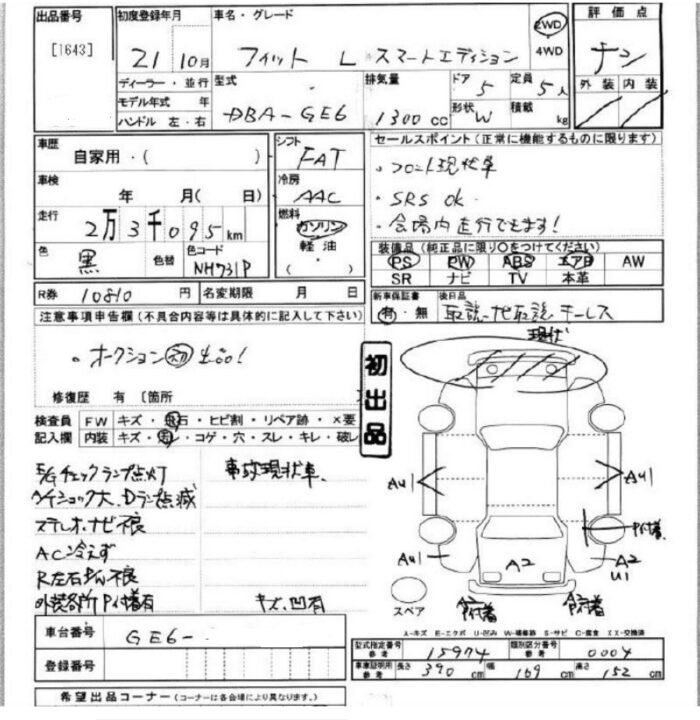 出品番号 初度登録年月 車名・グレード 2WD 評価点
[1643] 21 10月 フィット L スマートエディション 4WD
ディーラー・並行 型式 排気量 ドア 定員 外装 内装
モデル年式 年 DBA-GE6 1300cc 5 5人
ハンドル 左・右 形状 W 積載 kg
車歴 自家用・( ) シフト FAT セールスポイント(正常に機能するものに限ります)
・フロント現状車
車検 年 月( 日) 冷房 AAC ・SRS ok.
走行 2万3千095km 燃料 ガソリン 軽油 ・( ) ・会場内走行できます!
色 黒 色替 色コード NH731P 装備品(純正品に限り○をつけてください)
PS PW ABS エアB AW
SR ナビ TV 本革
R券 10810円 名変期限 月 日 新車保証書 有・無 後日品 取説・ナビ取説 キーレス
注意事項申告欄(不具合内容等は具体的に記入して下さい) 現状
・オークション初出品!
初出品
修復歴 有 〔箇所
検査員 FW キズ・飛石・ヒビ割・リペア跡・×要
記入欄 内装 キズ・汚レ・コゲ・穴・スレ・キレ・破レ
E/Gチェックランプ点灯 事故現状車.
A/Tショック大、Dランプ点滅 AU1 AU1
ステレオ、ナビ不良 P付着
ACん冷えず AU1 A2 A2
R左右P/W不良 U1
外装各所P付着有 キズ、凹有 スペア
車台番号 GE6- A-キズ E-エクボ U-凹み W-補修跡 S-サビ C-腐食 XX-交換済
型式指定番号 参考 15974 類別区分番号 参考 0004
登録番号 車庫証明用 参考 長さ 390cm 幅 169cm 高さ 152cm
希望出品コーナー(コーナーは各会場により異なります。)